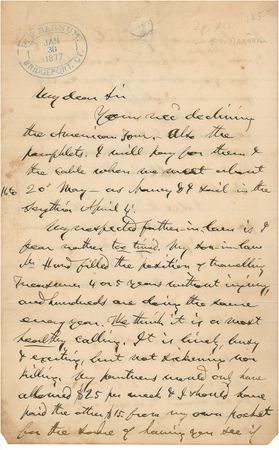 P.T. BARNUM,
JAN
30
1877
BRIDGEPORT, CT.
My dear Sir
Yours rec'd declining
the American tour. Also the
pamphlets. I will pay for them &
the cable when we meet about
20th May — as Nancy & I sail in the
Scythia April 4.
My respected father in law is I
fear rather too timid. My son in law
Mr Hurd filled the position of travelling
Treasurer 4 or 5 years without injury,
and hundreds are doing the same
every year. We think it is a most
healthy calling. It is lively, busy
& exciting, but not sickening nor
killing. My partners would only have
allowed $25 per week & I should have
paid the other $15. from my own pocket
for the sake of having you see if